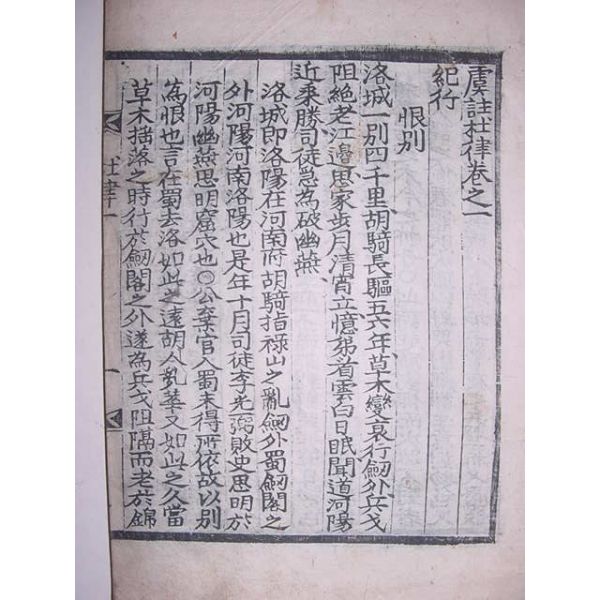 虞註杜律卷之一
紀行
恨別
洛城一別四千里胡騎長驅五六年草木變衰行劒外兵戈
阻絶老江邊思家步月清宵立憶弟看雲白日眠聞道河陽
近乘勝司徒急為破幽燕
洛城即洛陽在河南府胡騎指祿山之亂劒外蜀劒閣之
外河陽河南洛陽也是年十月司徒李光弼敗史思明於
河陽幽燕思明窟穴也〇公棄官入蜀未得所依故以別
為恨也言在蜀去洛如此之遠胡人亂華又如此之久當
草木搖落之時行於劒閣之外遂為兵戈阻隔而老於錦
杜律一
一